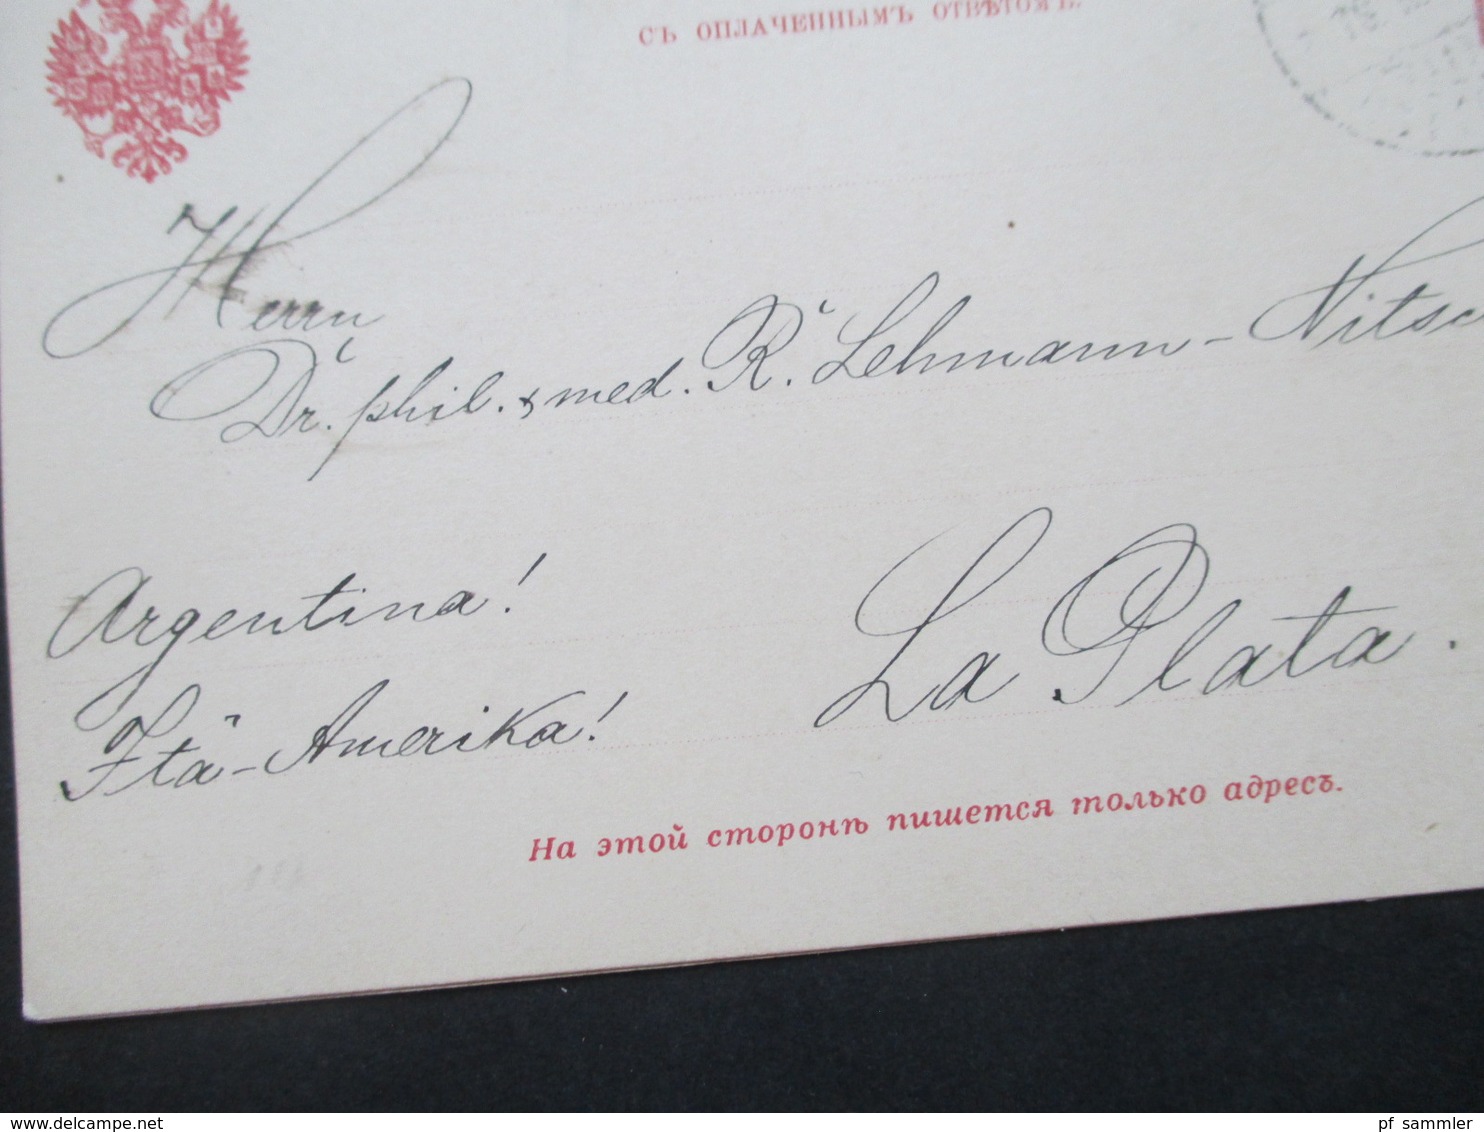 СЪ ОПЛАЧЕННЫМЪ ОТВѢТОМЪ.
Herrn
Dr. phil. & med. R. Lehmann-Nitsc
Argentina!
Itä-Amerika!
La Plata.
На этой сторонѣ пишется только адресъ.
delcampe.net
pf_sammler